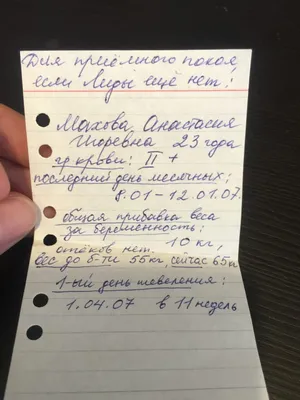 Для приёмного покоя
если Лиды ещё нет!
Махова Анастасия
Игоревна 23 года
гр. крови: II +
последний день месячных:
8.01-12.01.07.
общая прибавка веса
за беременность:
отёков нет. 10 кг,
вес до б-ти 55кг, сейчас 65кг
1-ый день шевеления:
1.04.07 в 11 недель